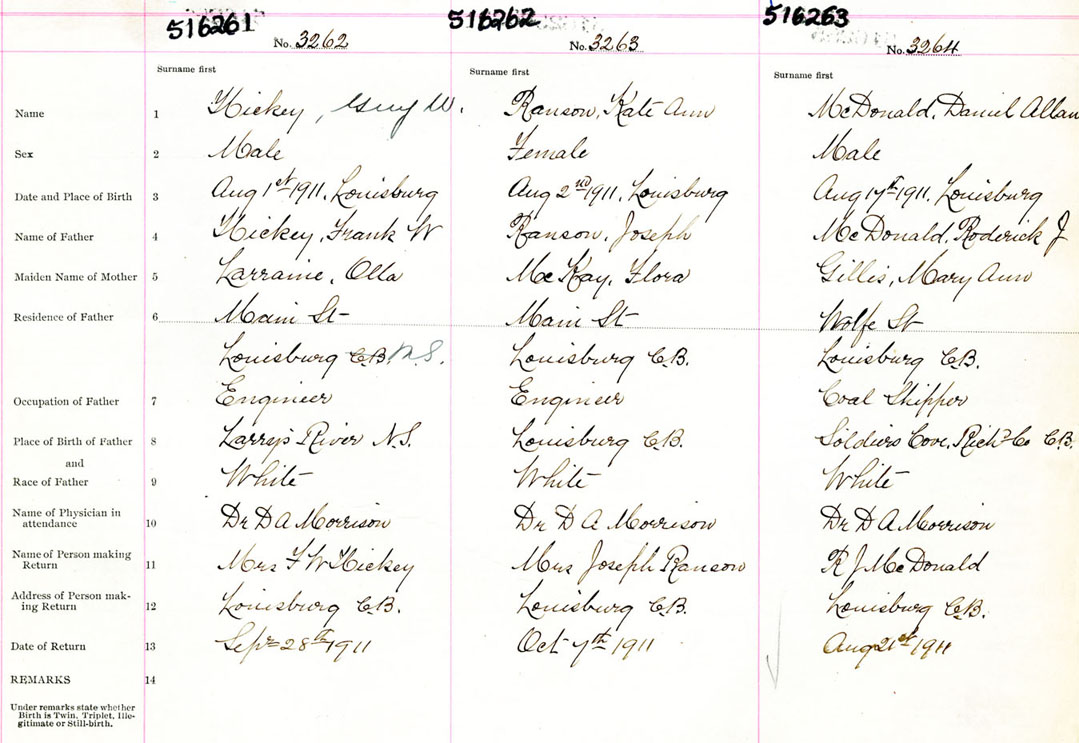 516261 516262 516263
No. 3262 No. 3263 No. 3264
Surname first Surname first Surname first
Name 1 Hickey, Guy W. Ranson, Kate Ann McDonald, Daniel Allan
Sex 2 Male Female Male
Date and Place of Birth 3 Aug 1st 1911, Louisburg Aug 2nd 1911, Louisburg Aug 17th 1911, Louisburg
Name of Father 4 Hickey, Frank W Ranson, Joseph McDonald, Roderick J
Maiden Name of Mother 5 Larraine, Olla McKay, Flora Gillis, Mary Ann
Residence of Father 6 Main St Main St Wolfe St
Louisburg C.B. N.S. Louisburg C.B. Louisburg C.B.
Occupation of Father 7 Engineer Engineer Coal Shipper
Place of Birth of Father 8 Larrys River N.S. Louisburg C.B. Soldiers Cove, Richd Co C.B.
and
Race of Father 9 White White White
Name of Physician in
attendance 10 Dr D A Morrison Dr D A Morrison Dr D A Morrison
Name of Person making
Return 11 Mrs F W Hickey Mrs Joseph Ranson R J McDonald
Address of Person mak-
ing Return 12 Louisburg C.B. Louisburg C.B. Louisburg C.B.
Date of Return 13 Sept 28th 1911 Oct 7th 1911 Aug 21st 1911
REMARKS 14
Under remarks state whether
Birth is Twin, Triplet, Ille-
gitimate or Still-birth.